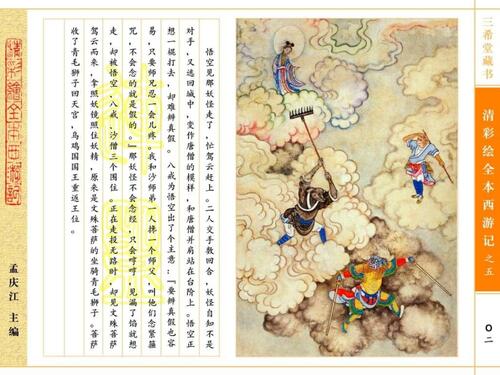 悟空见那妖怪走了，忙驾云赶上。二人交手数回合，妖怪自知不是
对手，又逃回城中，变作唐僧的模样，和唐僧并肩站在台阶上。悟空正
想一棍打去，却难辨真假。八戒为悟空出了个主意：『要辨真假也容
易，只要师兄忍一会儿疼。我和沙师弟一人搀一个师父，叫他们念紧箍
咒，不会念的就是假的。』那妖怪不会念经，只会哼哼，见漏了馅就想
走，却被悟空、八戒、沙僧三个围住。正在走投无路时，却见文殊菩萨
驾云而来，拿照妖镜照住妖精，原来是文殊菩萨的坐骑青毛狮子。菩萨
收了青毛狮子回天宫，乌鸡国国王重返王位。
三希堂藏书
清彩绘全本西游记之五
〇二
清彩绘全本西游记
孟庆江 主编